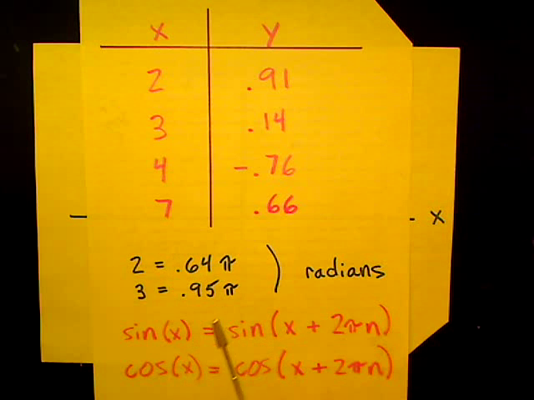 x y
2 .91
3 .14
4 -.76
7 .66
x
2 = .64 π
3 = .95 π ) radians
sin(x) = sin(x + 2πn)
cos(x) = cos(x + 2πn)